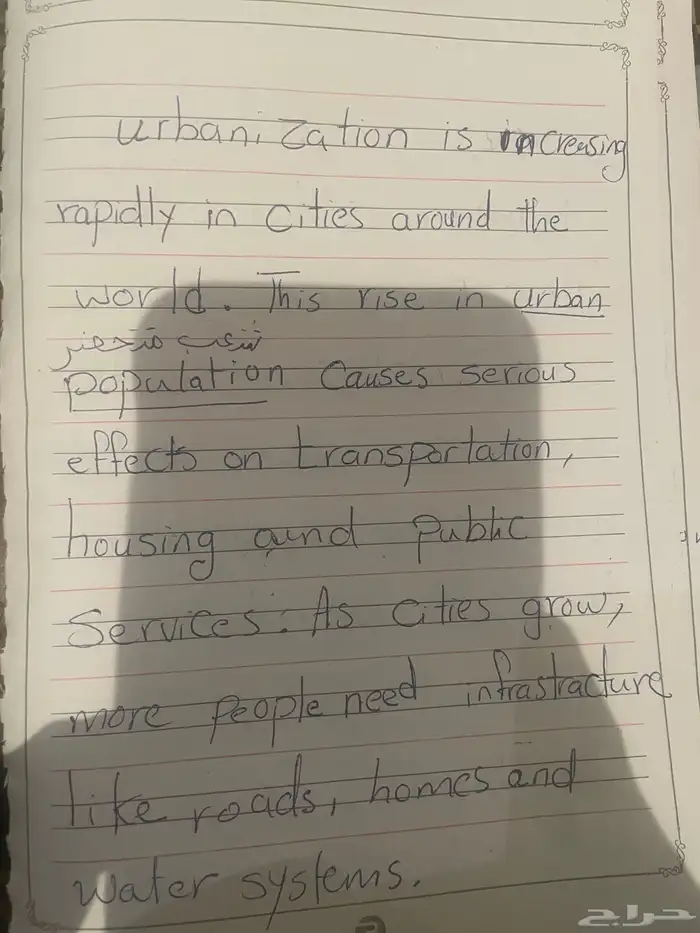 urbanization is increasing
rapidly in cities around the
world. This rise in urban
شعب متحضر
population causes serious
effects on transportation,
housing aund public
Services. As cities grow,
more people need infrastracture
like roads, homes and
water systems.
حراج